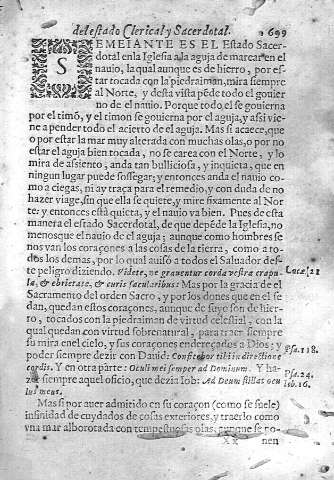 del estado Clerical y Sacerdotal. 699
SEMEIANTE ES EL Estado Sacer-
dotal en la Iglesia a la aguja de marear en el
nauio, la qual aunque es de hierro, por es-
tar tocada con la piedraiman, mira siempre
al Norte, y desta vista pẽde todo el gouier
no de el nauio. Porque todo el se gouierna
por el timõ, y el timon se gouierna por el aguja, y assi vie-
ne a pender todo el acierto de el aguja. Mas si acaece, que
o por estar la mar muy alterada con muchas olas, o por no
estar el aguja bien tocada, no se carea con el Norte, y lo
mira de assiento, anda tan bulliciosa, y inquieta, que en
ningun lugar puede sossegar; y entonces anda el nauio co-
mo a ciegas, ni ay traça para el remedio, y con duda de no
hazer viage, sin que ella se quiete, y mire fixamente al Nor
te: y entonces está quieta, y el nauio va bien. Pues desta
manera el estado Sacerdotal, de que depẽde la Iglesia, no
menos que el nauio de el aguja; aunque como hombres se
nos van los coraçones a las cosas de la tierra, como a to-
dos los demas, por lo qual auisó a todos el Saluador des-
te peligro diziendo. Videte, ne grauentur corda vestra crapu- Lucæ. 21
la, & ebrietate, & curis sæcularibus: Mas por la gracia de el
Sacramento del orden Sacro, y por los dones que en el se
dan, quedan estos coraçones, aunque de suyo son de hie-
rro, tocados con la piedraiman de virtud celestial, con la
qual quedan con virtud sobrenatural, para traer siempre
su mira en el cielo, y sus coraçones endereçados a Dios: y
poder siempre dezir con Dauid: Confitebor tibi in directione Psa. 118.
cordis. Y en otra parte: Oculi mei semper ad Dominum. Y ha- Psa. 24.
zer siempre aquel oficio, que dezia Iob: Ad Deum stillat ocu Iob. 16.
lus meus.
Mas si por auer admitido en su coraçon (como se suele)
infinidad de cuydados de cosas exteriores, y traerlo como
vna mar alborotada con tempestuosas olas, aunque se po-
Xx nen